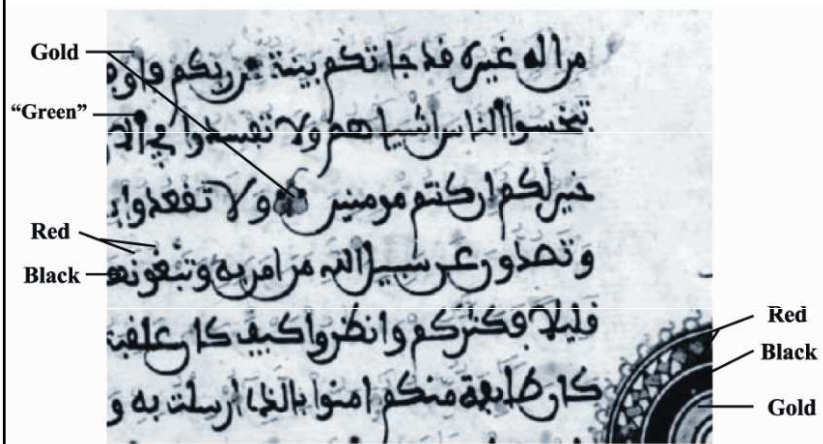 Gold
"Green"
Red
Black
من اله غيره قد جاتكم بينة من ربكم
تبخسوا الناس اشياهم ولا تفسدوا في
خير لكم ان كنتم مومنين ولا تقعدوا
وتصدون عن سبيل الله من امن به وتبغونها
قليلا فكثركم وانظروا كيف كان عقبة
كان طايفة منكم امنوا بالذي ارسلت به و
Red
Black
Gold